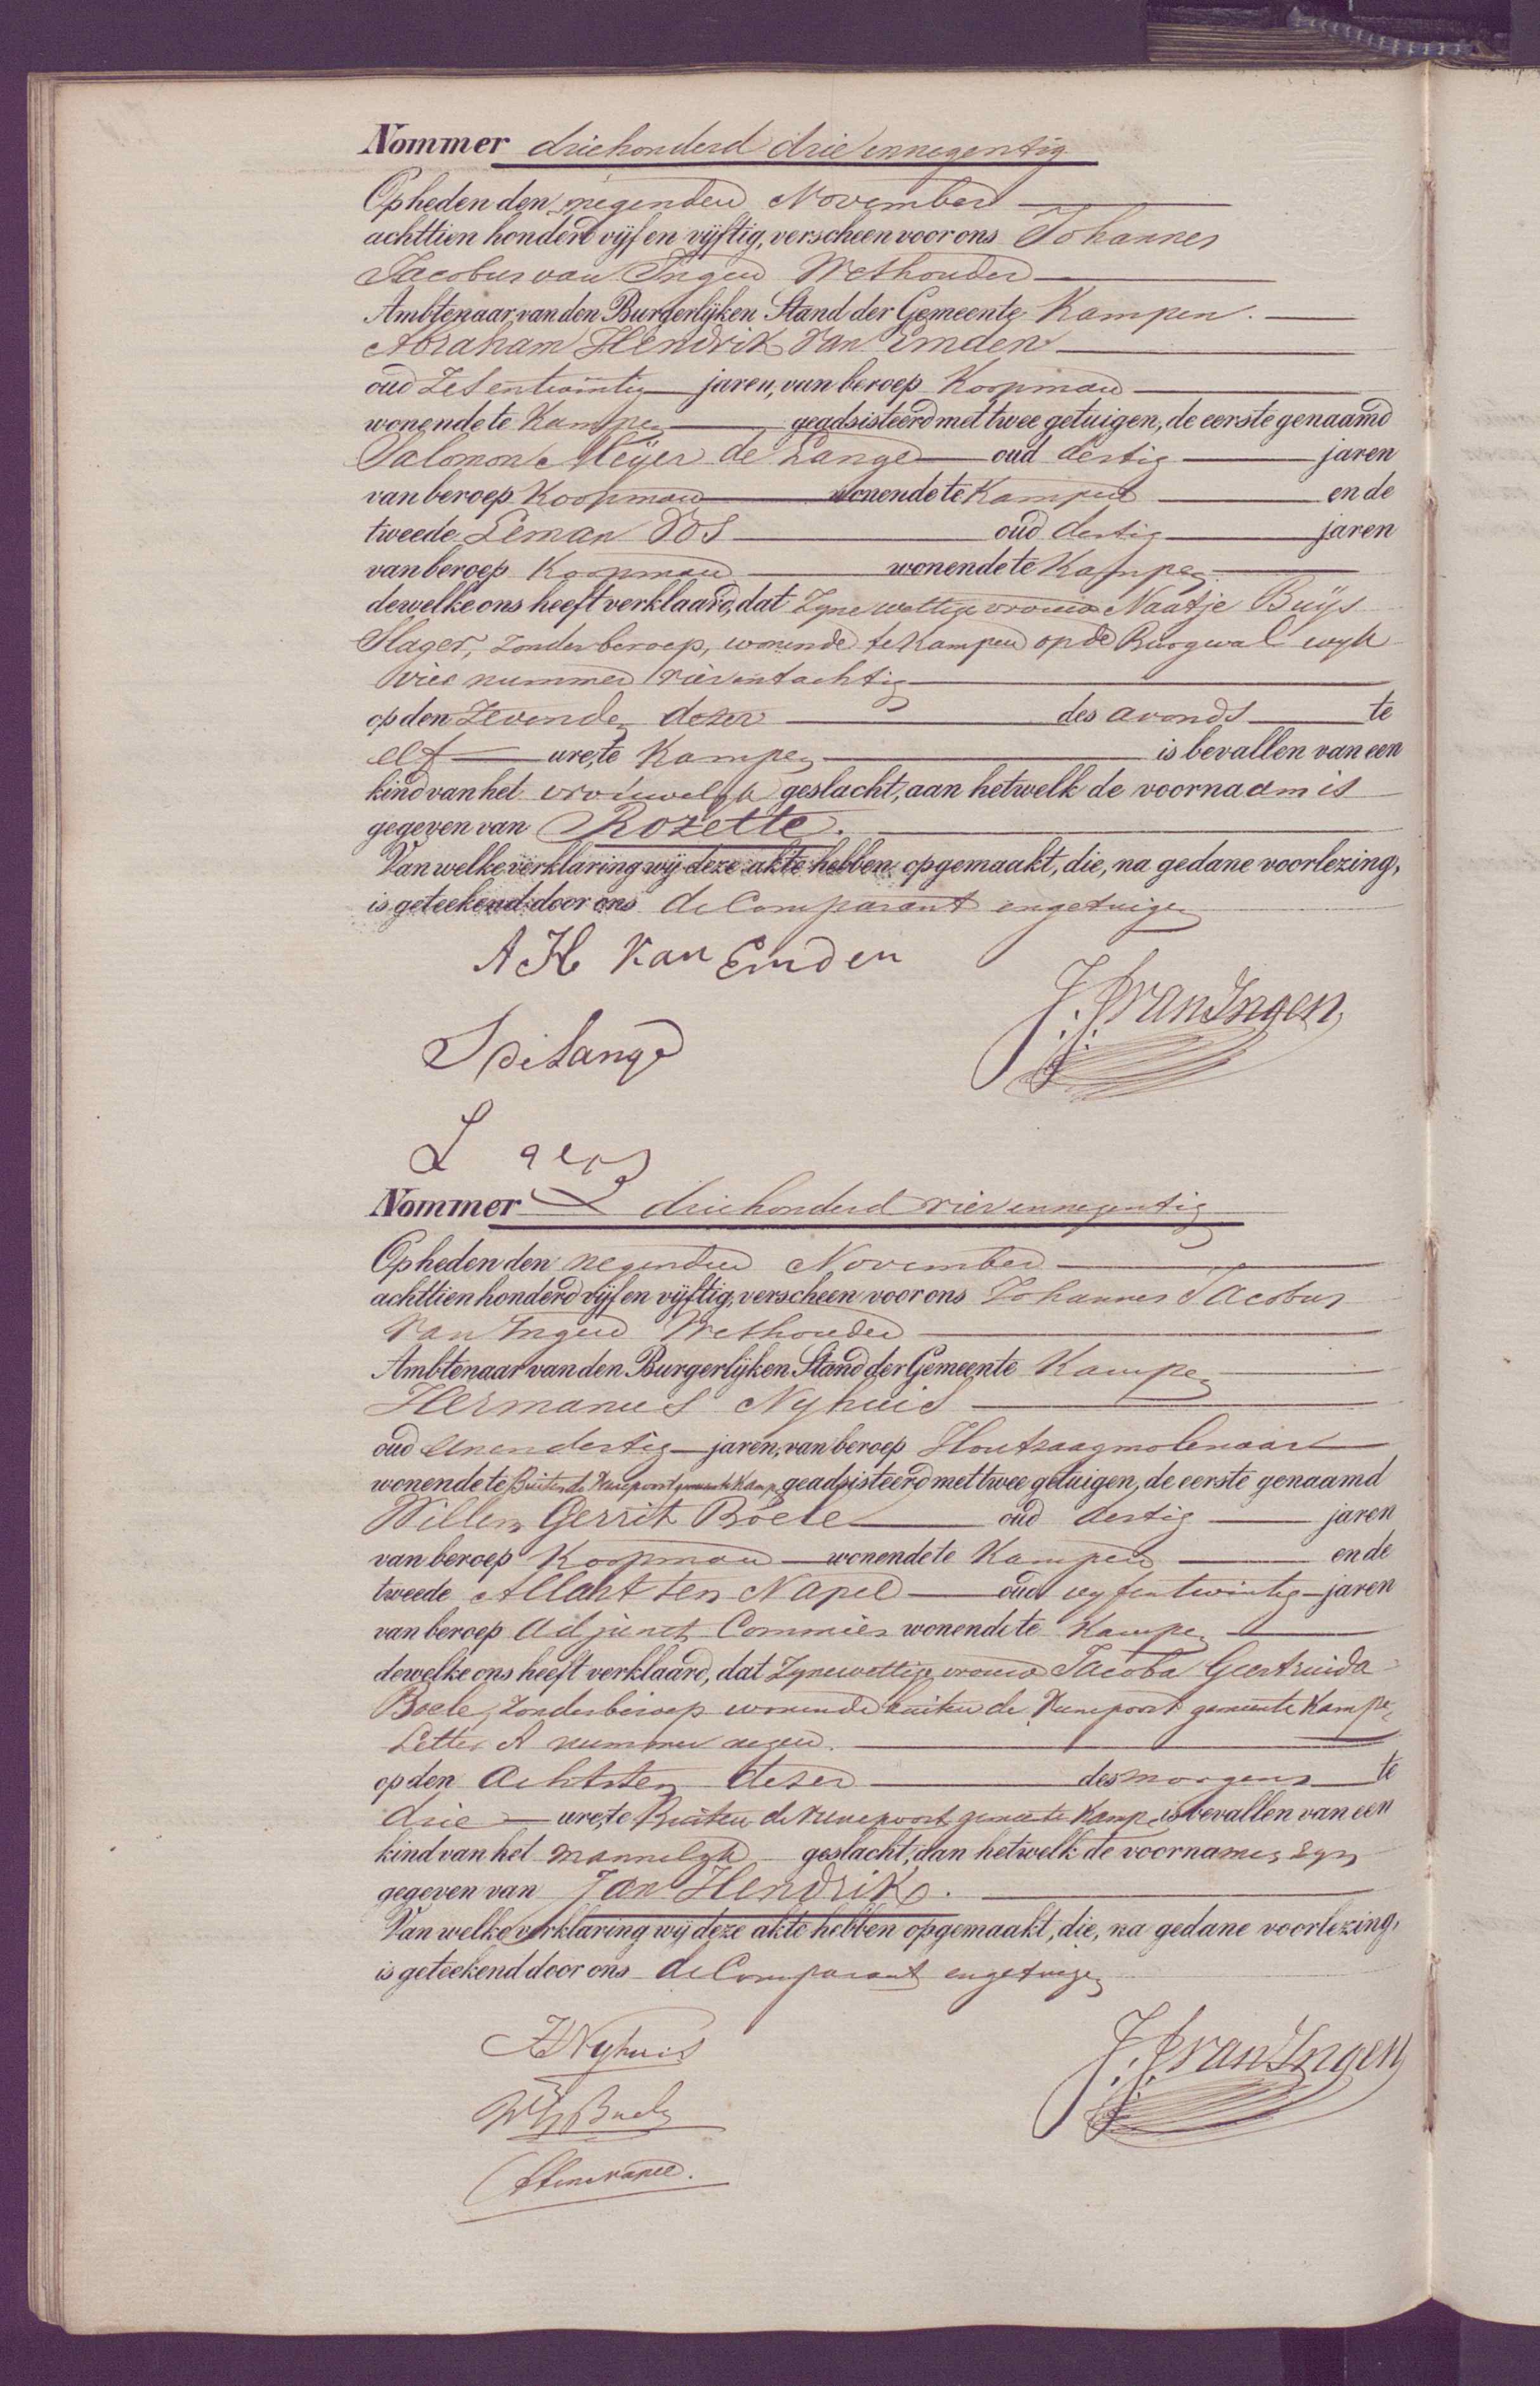 Nommer driehonderd drieennegentig
Op heden den negenden November
achttien honderd vijf en vijftig, verscheen voor ons Johannes
Jacobus van Ingen Wethouder
Ambtenaar van den Burgerlijken Stand der Gemeente Kampen.
Abraham Hendrik Van Emden
oud Zesentwintig jaren, van beroep Koopman
wonende te Kampen geadsisteerd met twee getuigen, de eerste genaamd
Salomon Meijer de Lange oud dertig jaren
van beroep Koopman wonende te Kampen en de
tweede Leman Vos oud dertig jaren
van beroep Koopman wonende te Kampen
dewelke ons heeft verklaard, dat Zyne wettige vrouw Naatje Buijs
Slager, zonder beroep, wonende te Kampen op de Burgwal wyk
vier nummer vierentachtig
op den Zevenden dezer des avonds te
elf ure, te Kampen is bevallen van een
kind van het vrouwelyk geslacht, aan hetwelk de voornaam is
gegeven van Rozette.
Van welke verklaring wij deze akte hebben opgemaakt, die, na gedane voorlezing,
is geteekend door ons de Comparant en getuigen
A H van Emden
J. J. van Ingen
S de Lange
L
Nommer driehonderd vierennegentig
Op heden den negenden November
achttien honderd vijf en vijftig, verscheen voor ons Johannes Jacobus
Van Ingen Wethouder
Ambtenaar van den Burgerlijken Stand der Gemeente Kampen
Hermanus Nyhuis
oud eenendertig jaren, van beroep Houtzaagmolenaar
wonende te Buiten de Venepoort gemeente Kamp geadsisteerd met twee getuigen, de eerste genaamd
Willem Gerrit Boele oud dertig jaren
van beroep Koopman wonende te Kampen en de
tweede Allart ten Napel oud vyfentwintig jaren
van beroep adjunct Commies wonende te Kampen
dewelke ons heeft verklaard, dat Zyne wettige vrouw Jacoba Geertruida
Boele, zonder beroep wonende buiten de Venepoort gemeente Kampen
Letter A nummer negen.
op den Achtsten dezer des morgens te
drie ure, te Buiten de Venepoort gemeente Kamp is bevallen van een
kind van het mannelyk geslacht, aan hetwelk de voornamen zyn
gegeven van Jan Hendrik.
Van welke verklaring wij deze akte hebben opgemaakt, die, na gedane voorlezing,
is geteekend door ons de Comparant en getuigen
H Nyhuis
J. J. van Ingen
W G Boele
A ten Napel.